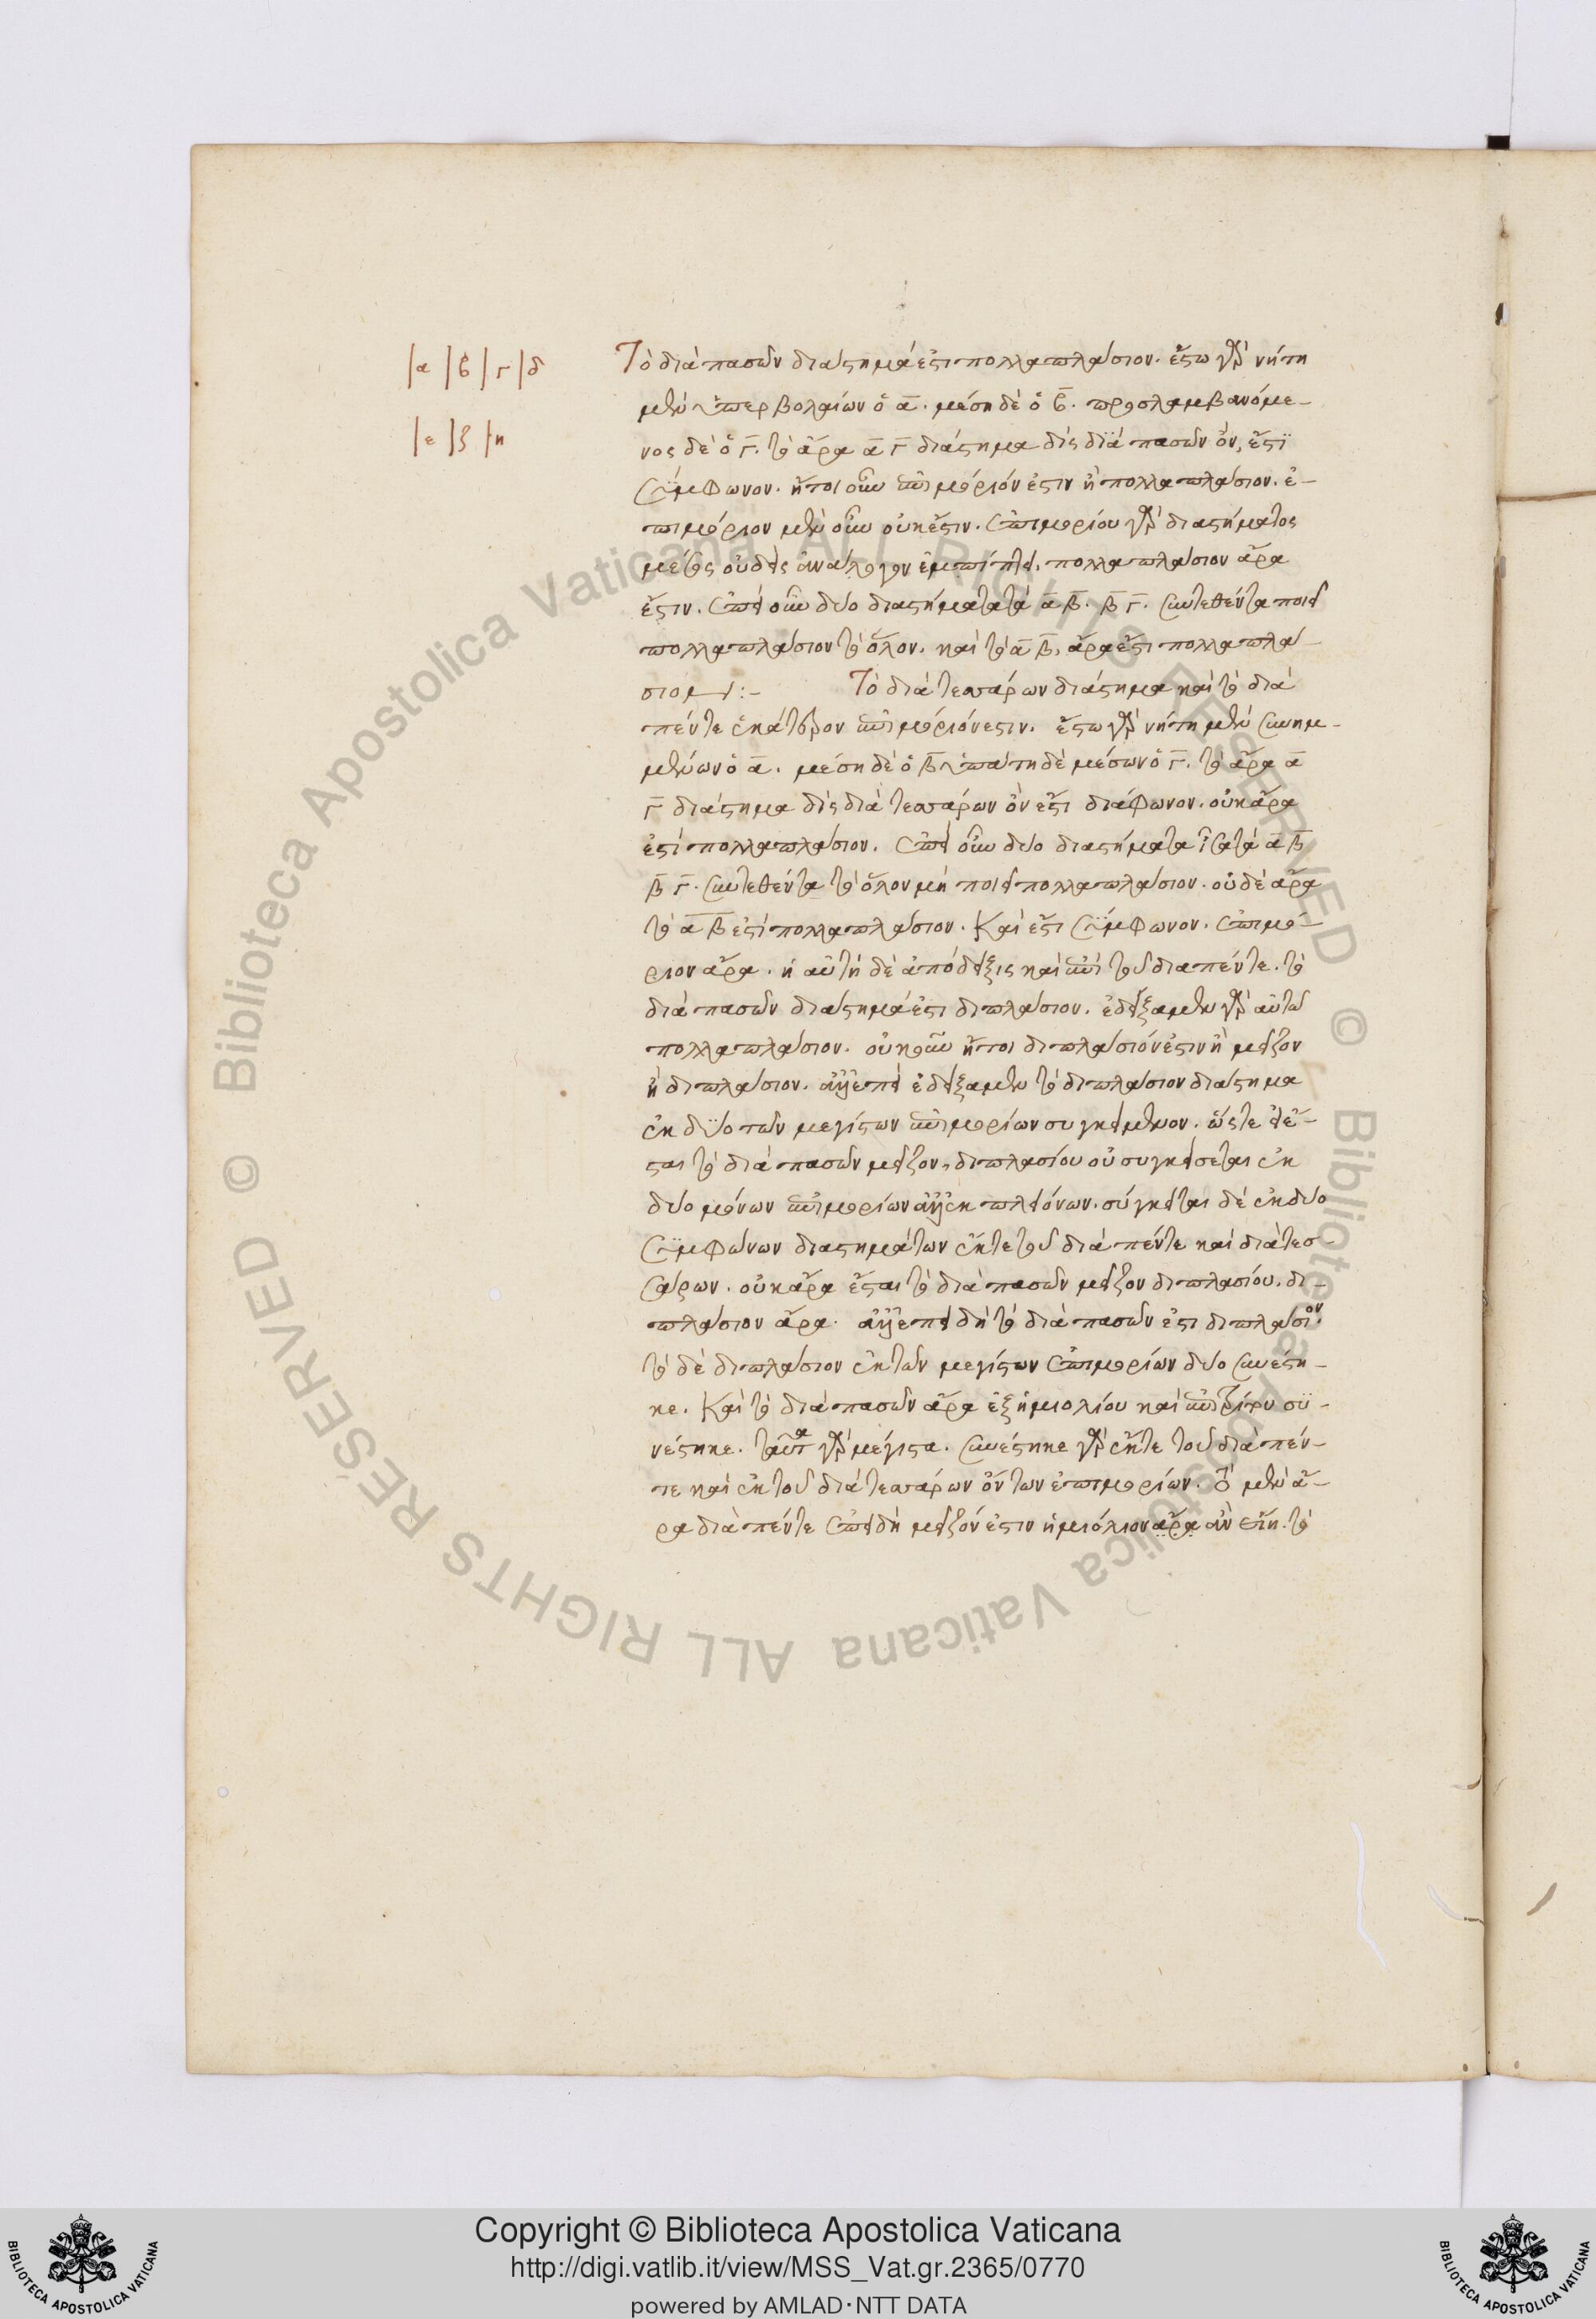 |α |β |γ |δ
|ε |ζ |η
Τὸ διὰ πασῶν διάστημά ἐστι πολλαπλάσιον. ἔστω γὰρ νήτη
μὲν ὑπερβολαίων ὁ α̅. μέση δὲ ὁ β̅. προσλαμβανόμε-
νος δὲ ὁ γ̅. τὸ ἄρα α̅ γ̅ διάστημα δὶς διὰ πασῶν ὄν, ἔστϊ
σύμφωνον. ἤτοι οὖν ἐπιμόριόν ἐστιν ἢ πολλαπλάσιον. ἐ-
πιμόριον μὲν οὖν οὐκ ἔστιν. ἐπιμορίου γὰρ διαστήματος
μέσος οὐδεὶς ἀνάλογον ἐμπίπτει. πολλαπλάσιον ἄρα
ἔστιν. ἐπεὶ οὖν δύο διαστήματα τὰ α̅ β̅. β̅ γ̅. συντεθέντα ποιεῖ
πολλαπλάσιον τὸ ὅλον. καὶ τὸ α̅ β̅, ἄρα ἔστι πολλαπλά-
σιον :- Τὸ διὰ τεσσάρων διάστημα καὶ τὸ διὰ
πέντε ἑκάτερον ἐπιμόριόν εστιν. ἔστω γὰρ νήτη μὲν συνημ-
μένων ὁ α̅. μέση δὲ ὁ β̅ ὑπάτη δὲ μέσων ὁ γ̅. τὸ ἄρα α̅
γ̅ διάστημα δὶς διὰ τεσσάρων ὂν ἔστι διάφωνον. οὐκ ἄρα
ἐστὶ πολλαπλάσιον. ἐπεὶ οὖν δύο διαστήματα ἴσα τὰ α̅ β̅
β̅ γ̅. συντεθέντα τὸ ὅλον μὴ ποιεῖ πολλαπλάσιον. οὐδὲ ἄρα
τὸ α̅ β̅ ἐστὶ πολλαπλάσιον. Καὶ ἔστι σύμφωνον. ἐπιμό-
ριον ἄρα. ἡ αὐτὴ δὲ ἀπόδειξις καὶ ἐπὶ τοῦ διαπέντε. τὸ
διὰ πασῶν διάστημά ἐστι διπλάσιον. ἐδείξαμεν γὰρ αὐτὸ
πολλαπλάσιον. οὐκοῦν ἤτοι διπλάσιόν ἐστιν ἢ μεῖζον
ἢ διπλάσιον. ἀλλ' ἐπεὶ ἐδείξαμεν τὸ διπλάσιον διάστημα
ἐκ δύο τῶν μεγίστων ἐπιμορίων συγκείμενον. ὥστε εἰ ἔ-
σται τὸ διὰ πασῶν μεῖζον, διπλασίου οὐ συγκείσεται ἐκ
δύο μόνων ἐπιμορίων ἀλλ' ἐκ πλειόνων. σύγκειται δὲ ἐκ δύο
συμφώνων διαστημάτων ἔκ τε τοῦ διὰ πέντε καὶ διὰ τεσ-
σάρων. οὐκ ἄρα ἔσται τὸ διὰ πασῶν μεῖζον διπλασίου. δι-
πλάσιον ἄρα. ἀλλ' ἐπειδὴ τὸ διὰ πασῶν ἐστι διπλάσιον.
τὸ δὲ διπλάσιον ἐκ τῶν μεγίστων ἐπιμορίων δύο συνέστη-
κε. Καὶ τὸ διὰ πασῶν ἄρα ἐξ ἡμιολίου καὶ ἐπιτρίτου συ-
νέστηκε. ταῦτα γὰρ μέγιστα. συνέστηκε γὰρ ἔκ τε τοῦ διὰ πέν-
τε καὶ ἐκ τοῦ διὰ τεσσάρων ὄντων ἐπιμορίων. τὸ μὲν ἄ-
ρα διὰ πέντε ἐπειδὴ μεῖζόν ἐστιν ἡμιόλιον ἄρα ἂν εἴη. τὸ
Copyright © Biblioteca Apostolica Vaticana
http://digi.vatlib.it/view/MSS_Vat.gr.2365/0770
powered by AMLAD·NTT DATA
BIBLIOTECA APOSTOLICA VATICANA
BIBLIOTECA APOSTOLICA VATICANA
© Biblioteca Apostolica Vaticana ALL RIGHTS RESERVED
© Biblioteca Apostolica Vaticana ALL RIGHTS RESERVED